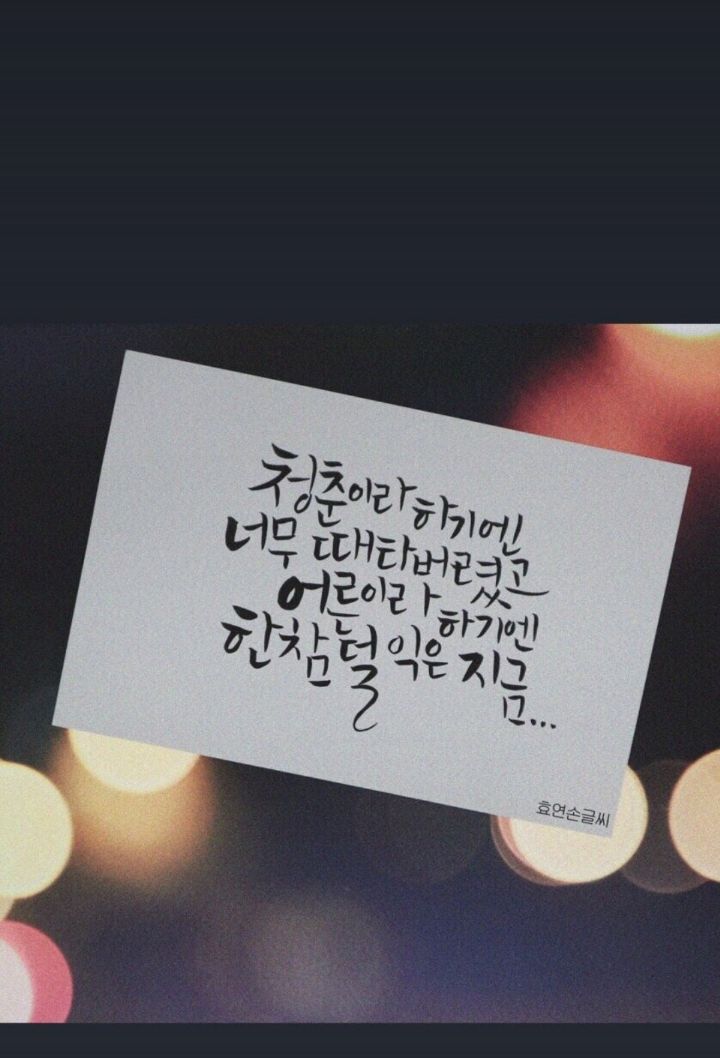 청춘이라 하기엔
너무 때타버렸고
어른이라 하기엔
한참 덜 익은 지금...
효연손글씨